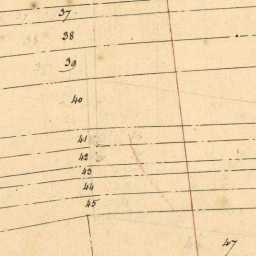 37
38
39
40
41
42
43
44
45
47